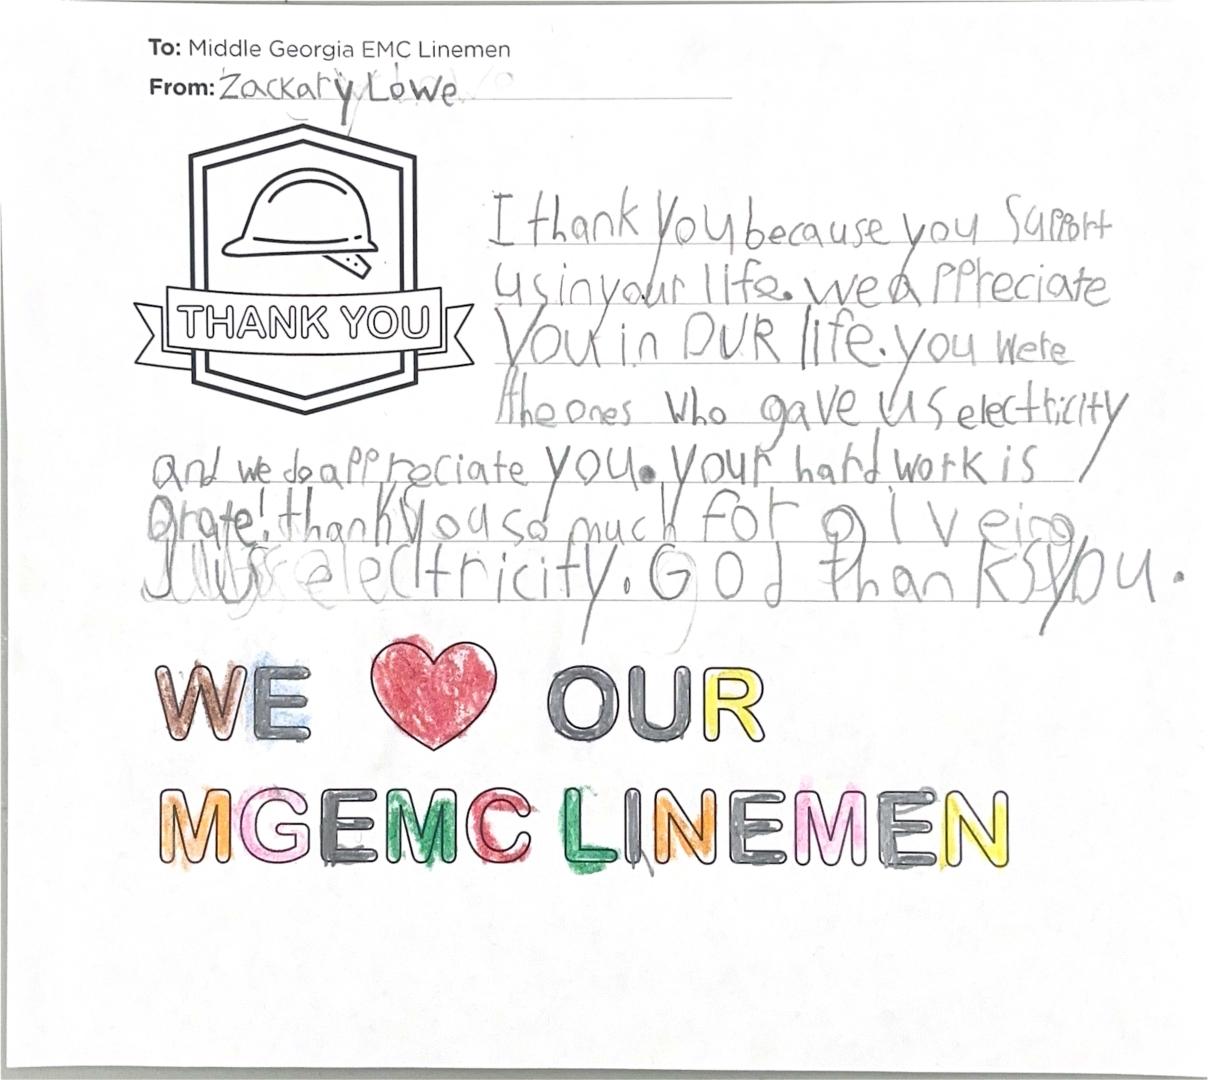 To: Middle Georgia EMC Linemen
From: Zackary Lowe
THANK YOU
I thank you because you Support
us in your life. we appreciate
Your in OUR life. you were
the ones who gave us electricity
and we do appreciate you. your hard work is
grate! thank you so much for giveing
us electricity. God thanks you.
WE OUR
MGEMC LINEMEN